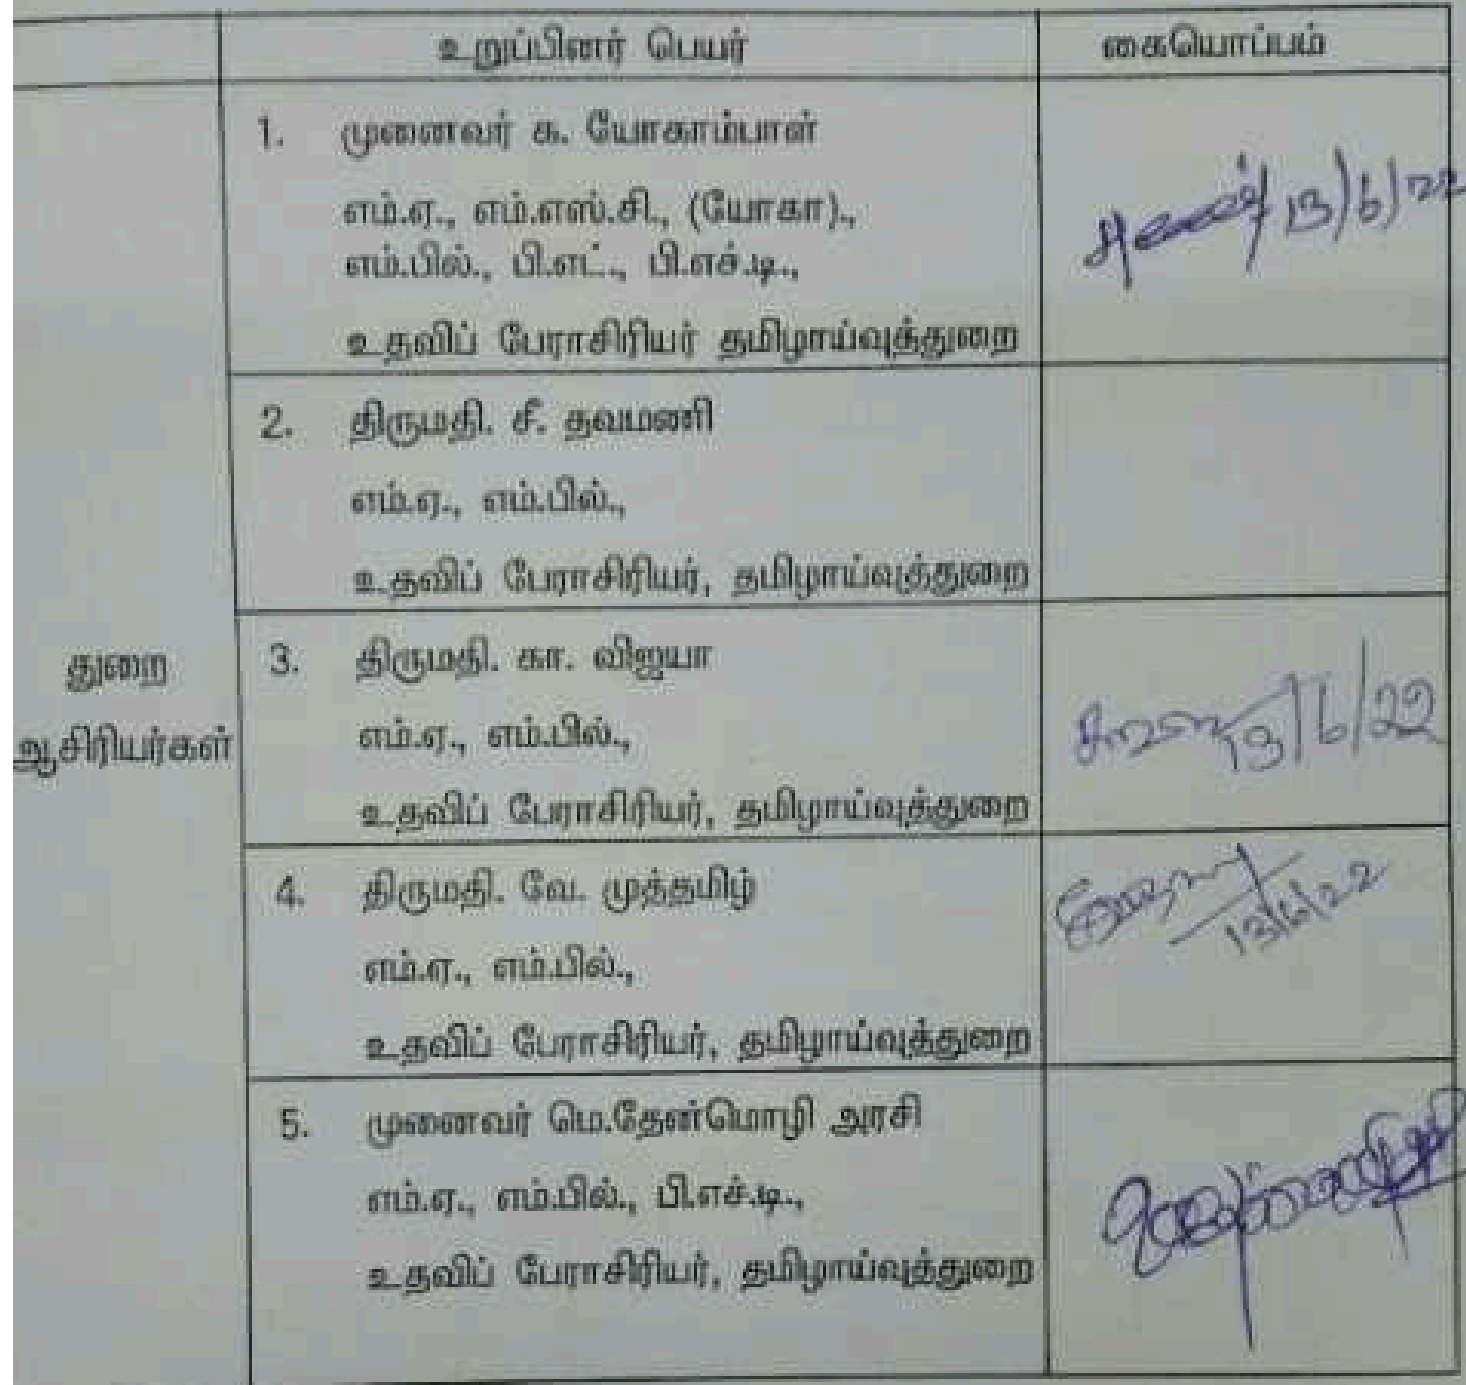 உறுப்பினர் பெயர் கையொப்பம்
1. முனைவர் க. யோகாம்பாள்
எம்.ஏ., எம்.எஸ்.சி., (யோகா).,
எம்.பில்., பி.எட்., பி.எச்.டி.,
உதவிப் பேராசிரியர் தமிழாய்வுத்துறை
13/6/22
2. திருமதி. சீ. தவமணி
எம்.ஏ., எம்.பில்.,
உதவிப் பேராசிரியர், தமிழாய்வுத்துறை
துறை
ஆசிரியர்கள்
3. திருமதி. கா. விஜயா
எம்.ஏ., எம்.பில்.,
உதவிப் பேராசிரியர், தமிழாய்வுத்துறை
13/6/22
4. திருமதி. வே. முத்தமிழ்
எம்.ஏ., எம்.பில்.,
உதவிப் பேராசிரியர், தமிழாய்வுத்துறை
13/6/22
5. முனைவர் மெ.தேன்மொழி அரசி
எம்.ஏ., எம்.பில்., பி.எச்.டி.,
உதவிப் பேராசிரியர், தமிழாய்வுத்துறை